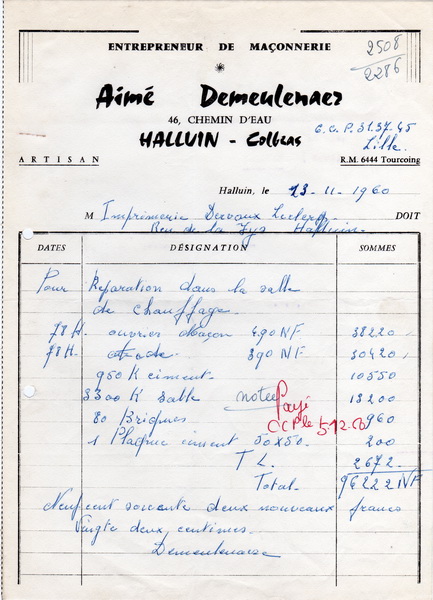 ENTREPRENEUR DE MAÇONNERIE
2508
2286
Aimé Demeulenaer
46, CHEMIN D'EAU
HALLUIN - Colbras
C.C.P. 31.37.45
Lille.
ARTISAN
R.M. 6444 Tourcoing
Halluin, le 13-11-1960
M Imprimerie Dervaux Leclercq DOIT
Rue de la Lys Halluin
DATES DÉSIGNATION SOMMES
Pour Réparation dans la salle
de chauffage.
78 H. ouvrier Maçon 490 NF 38220
78 H. 390 NF 30420
950 K ciment 10550
3300 K sable notée 13200
Payé
CCP le 5.12.60
80 Briques 960
1 Plaque ciment 50x50. 200
T L. 2672.
Total. 96222 NF
Neuf cent soixante deux nouveaux francs
Vingt deux centimes.
Demeulenaer